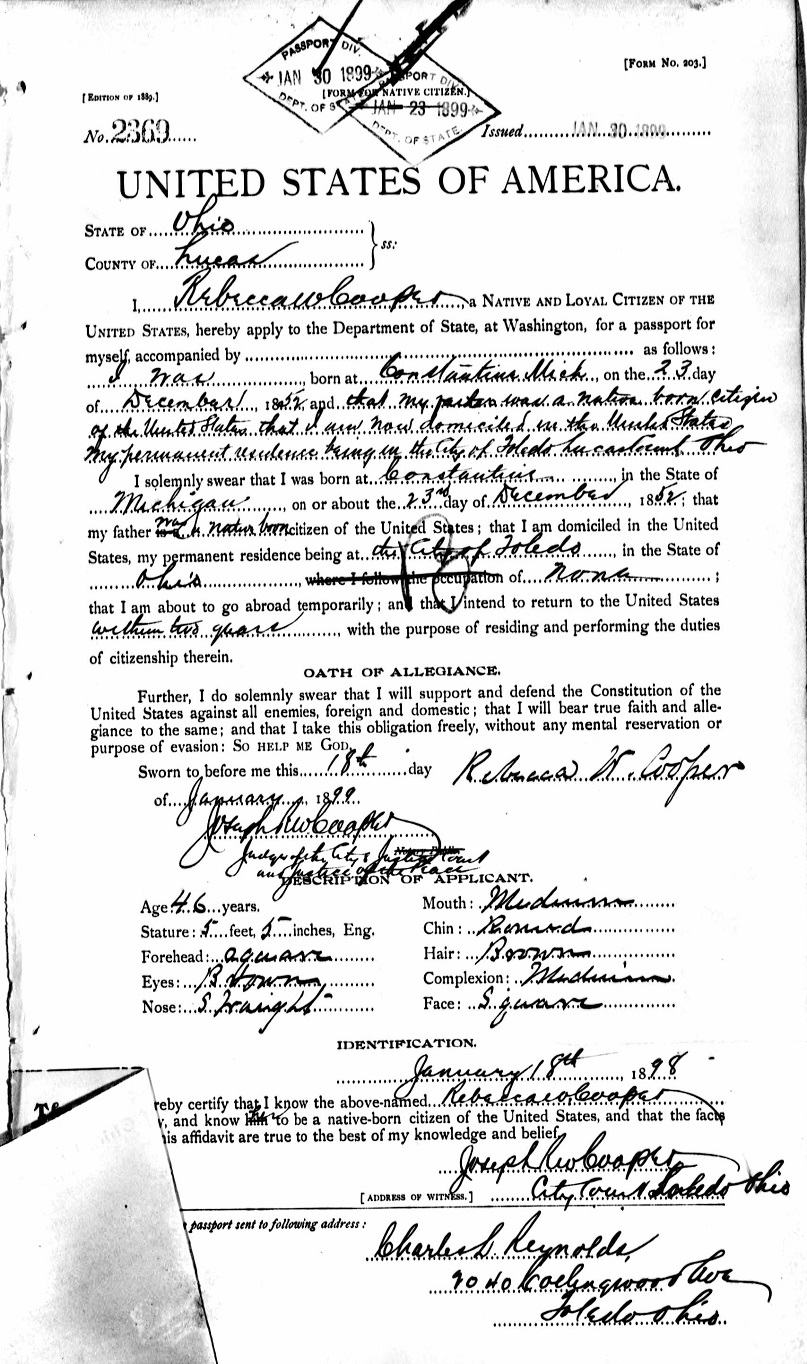 PASSPORT DIV.
JAN 30 1899
DEPT. OF
PORT DIV.
JAN 23 1899
DEPT. OF STATE.
[FORM NO. 203.]
[EDITION OF 1889.]
[FORM FOR NATIVE CITIZEN.]
No. 2369 Issued JAN. 30 1899
UNITED STATES OF AMERICA.
STATE OF Ohio
COUNTY OF Lucas } ss:
I, Rebecca W Cooper, a NATIVE AND LOYAL CITIZEN OF THE
UNITED STATES, hereby apply to the Department of State, at Washington, for a passport for
myself, accompanied by as follows:
I was, born at Constantine Mich, on the 23 day
of December, 1852, and that my was a native born citizen
of the United States that I am now domiciled in the United States
My permanent residence being in the City of Toledo Lucas County Ohio
I solemnly swear that I was born at Constantine, in the State of
Michigan, on or about the 23rd day of December, 1852; that
my father was a native born citizen of the United States; that I am domiciled in the United
States, my permanent residence being at the City of Toledo, in the State of
Ohio, where I follow the occupation of none;
that I am about to go abroad temporarily; and that I intend to return to the United States
within two years, with the purpose of residing and performing the duties
of citizenship therein.
OATH OF ALLEGIANCE.
Further, I do solemnly swear that I will support and defend the Constitution of the
United States against all enemies, foreign and domestic; that I will bear true faith and alle-
giance to the same; and that I take this obligation freely, without any mental reservation or
purpose of evasion: SO HELP ME GOD.
Sworn to before me this 18th day Rebecca W. Cooper
of January, 1899.
Joseph R W Cooper
Judge of the City & Justice Court
and Justice of the Peace
DESCRIPTION OF APPLICANT.
Age: 46 years. Mouth: Medium
Stature: 5 feet, 5 inches, Eng. Chin: Round
Forehead: square Hair: Brown
Eyes: Brown Complexion: Medium
Nose: Straight Face: Square
IDENTIFICATION.
January 18th, 1898
reby certify that I know the above-named Rebecca W Cooper
, and know him her to be a native-born citizen of the United States, and that the facts
his affidavit are true to the best of my knowledge and belief.
Joseph R W Cooper
[ADDRESS OF WITNESS.] City Court Toledo Ohio
passport sent to following address:
Charles L Reynolds,
2040 Collingwood Ave
Toledo Ohio